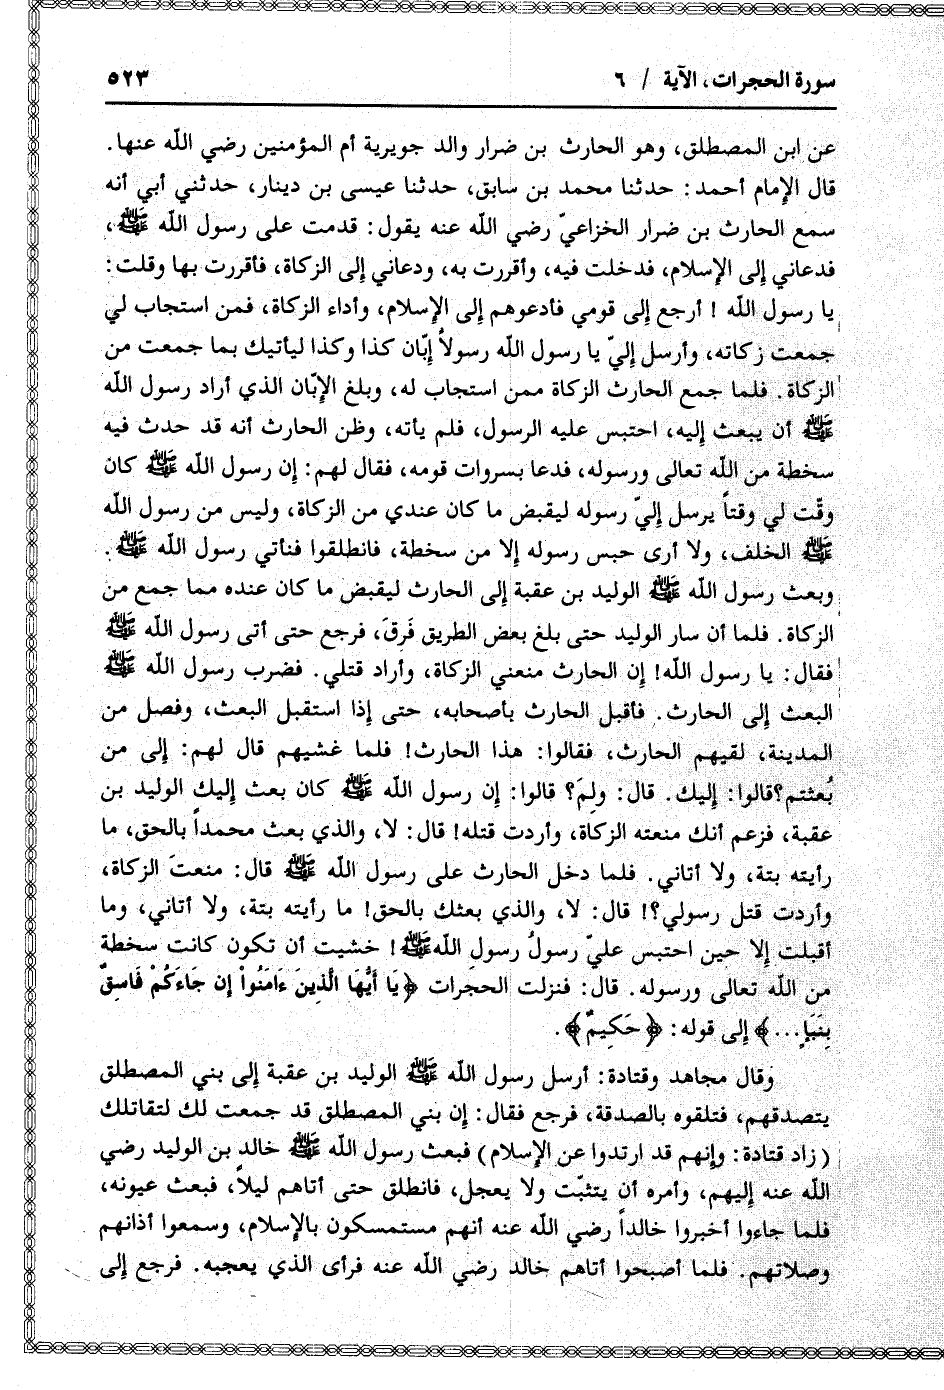 سورة الحجرات، الآية / ٦ ٥٢٣
عن ابن المصطلق، وهو الحارث بن ضرار والد جويرية أم المؤمنين رضي الله عنها.
قال الإمام أحمد: حدثنا محمد بن سابق، حدثنا عيسى بن دينار، حدثني أبي أنه
سمع الحارث بن ضرار الخزاعيّ رضي الله عنه يقول: قدمت على رسول الله ﷺ،
فدعاني إلى الإسلام، فدخلت فيه، وأقررت به، ودعاني إلى الزكاة، فأقررت بها وقلت:
يا رسول الله ! أرجع إلى قومي فأدعوهم إلى الإسلام، وأداء الزكاة، فمن استجاب لي
جمعت زكاته، وأرسل إليّ يا رسول الله رسولاً إبّان كذا وكذا ليأتيك بما جمعت من
الزكاة. فلما جمع الحارث الزكاة ممن استجاب له، وبلغ الإبّان الذي أراد رسول الله
ﷺ أن يبعث إليه، احتبس عليه الرسول، فلم يأته، وظن الحارث أنه قد حدث فيه
سخطة من الله تعالى ورسوله، فدعا بسروات قومه، فقال لهم: إن رسول الله ﷺ كان
وقّت لي وقتاً يرسل إليّ رسوله ليقبض ما كان عندي من الزكاة، وليس من رسول الله
ﷺ الخلف، ولا أرى حبس رسوله إلا من سخطة، فانطلقوا فنأتي رسول الله ﷺ.
وبعث رسول الله ﷺ الوليد بن عقبة إلى الحارث ليقبض ما كان عنده مما جمع من
الزكاة. فلما أن سار الوليد حتى بلغ بعض الطريق فَرقَ، فرجع حتى أتى رسول الله ﷺ
فقال: يا رسول الله! إن الحارث منعني الزكاة، وأراد قتلي. فضرب رسول الله ﷺ
البعث إلى الحارث. فأقبل الحارث بأصحابه، حتى إذا استقبل البعث، وفصل من
المدينة، لقيهم الحارث، فقالوا: هذا الحارث! فلما غشيهم قال لهم: إلى من
بُعثتم؟قالوا: إليك. قال: ولِمَ؟ قالوا: إن رسول الله ﷺ كان بعث إليك الوليد بن
عقبة، فزعم أنك منعته الزكاة، وأردت قتله! قال: لا، والذي بعث محمداً بالحق، ما
رأيته بتة، ولا أتاني. فلما دخل الحارث على رسول الله ﷺ قال: منعتَ الزكاة،
وأردت قتل رسولي؟! قال: لا، والذي بعثك بالحق! ما رأيته بتة، ولا أتاني، وما
أقبلت إلا حين احتبس عليّ رسولُ رسولِ اللهﷺ! خشيت أن تكون كانت سخطة
من الله تعالى ورسوله. قال: فنزلت الحجرات ﴿يَا أَيُّهَا الَّذِينَ ءَامَنُواْ إِن جَاءَكُمْ فَاسِقٌ
بِنَبَإٍ...﴾ إلى قوله: ﴿حَكِيمٌ﴾.
وقال مجاهد وقتادة: أرسل رسول الله ﷺ الوليد بن عقبة إلى بني المصطلق
يتصدقهم، فتلقوه بالصدقة، فرجع فقال: إن بني المصطلق قد جمعت لك لتقاتلك
(زاد قتادة: وإنهم قد ارتدوا عن الإسلام) فبعث رسول الله ﷺ خالد بن الوليد رضي
الله عنه إليهم، وأمره أن يتثبّت ولا يعجل، فانطلق حتى أتاهم ليلاً، فبعث عيونه،
فلما جاءوا أخبروا خالداً رضي الله عنه أنهم مستمسكون بالإسلام، وسمعوا أذانهم
وصلاتهم. فلما أصبحوا أتاهم خالد رضي الله عنه فرأى الذي يعجبه. فرجع إلى